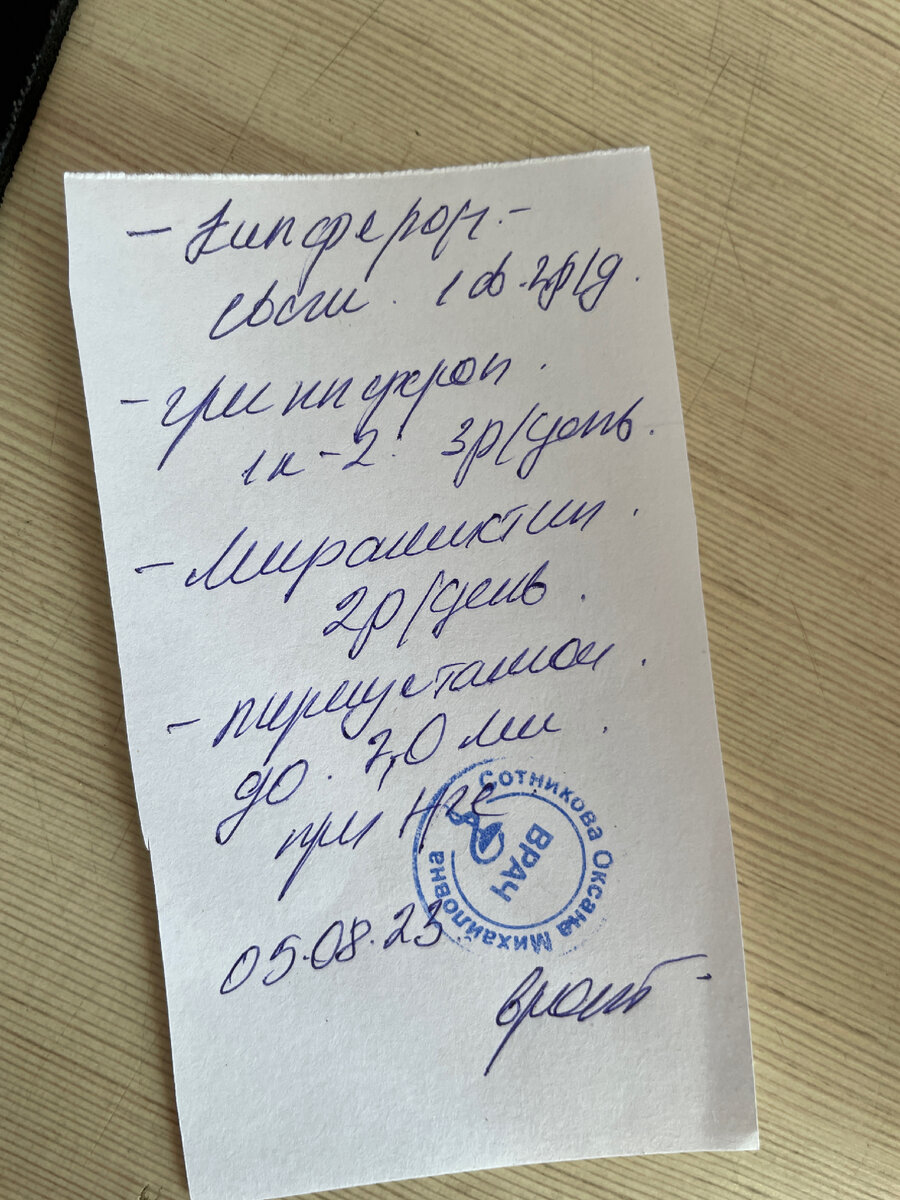 - Кипферон -
свечи. 1 св. 2р/д.
- гриппферон.
1к - 2. 3р/день.
- Мирамистин.
2р/день.
-
до. 2,0 мл.
при
Сотникова Оксана Михайловна
ВРАЧ
05.08.23